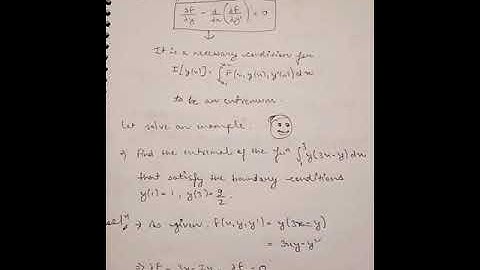 ∂F/∂y - d/dx (∂F/∂y') = 0
It is a necessary condition for
I[y(x)] = ∫ F(x, y(x), y'(x)) dx
to be an extremum.
Let solve an example.
→ Find the extremal of the fuⁿ ∫₁³ y(3x-y) dx
that satisfy the boundary conditions
y(1) = 1, y(3) = 9/2.
→ As given: F(x, y, y') = y(3x-y)
= 3xy - y²
⇒ ∂F = 3x - 2y, ∂F = 0